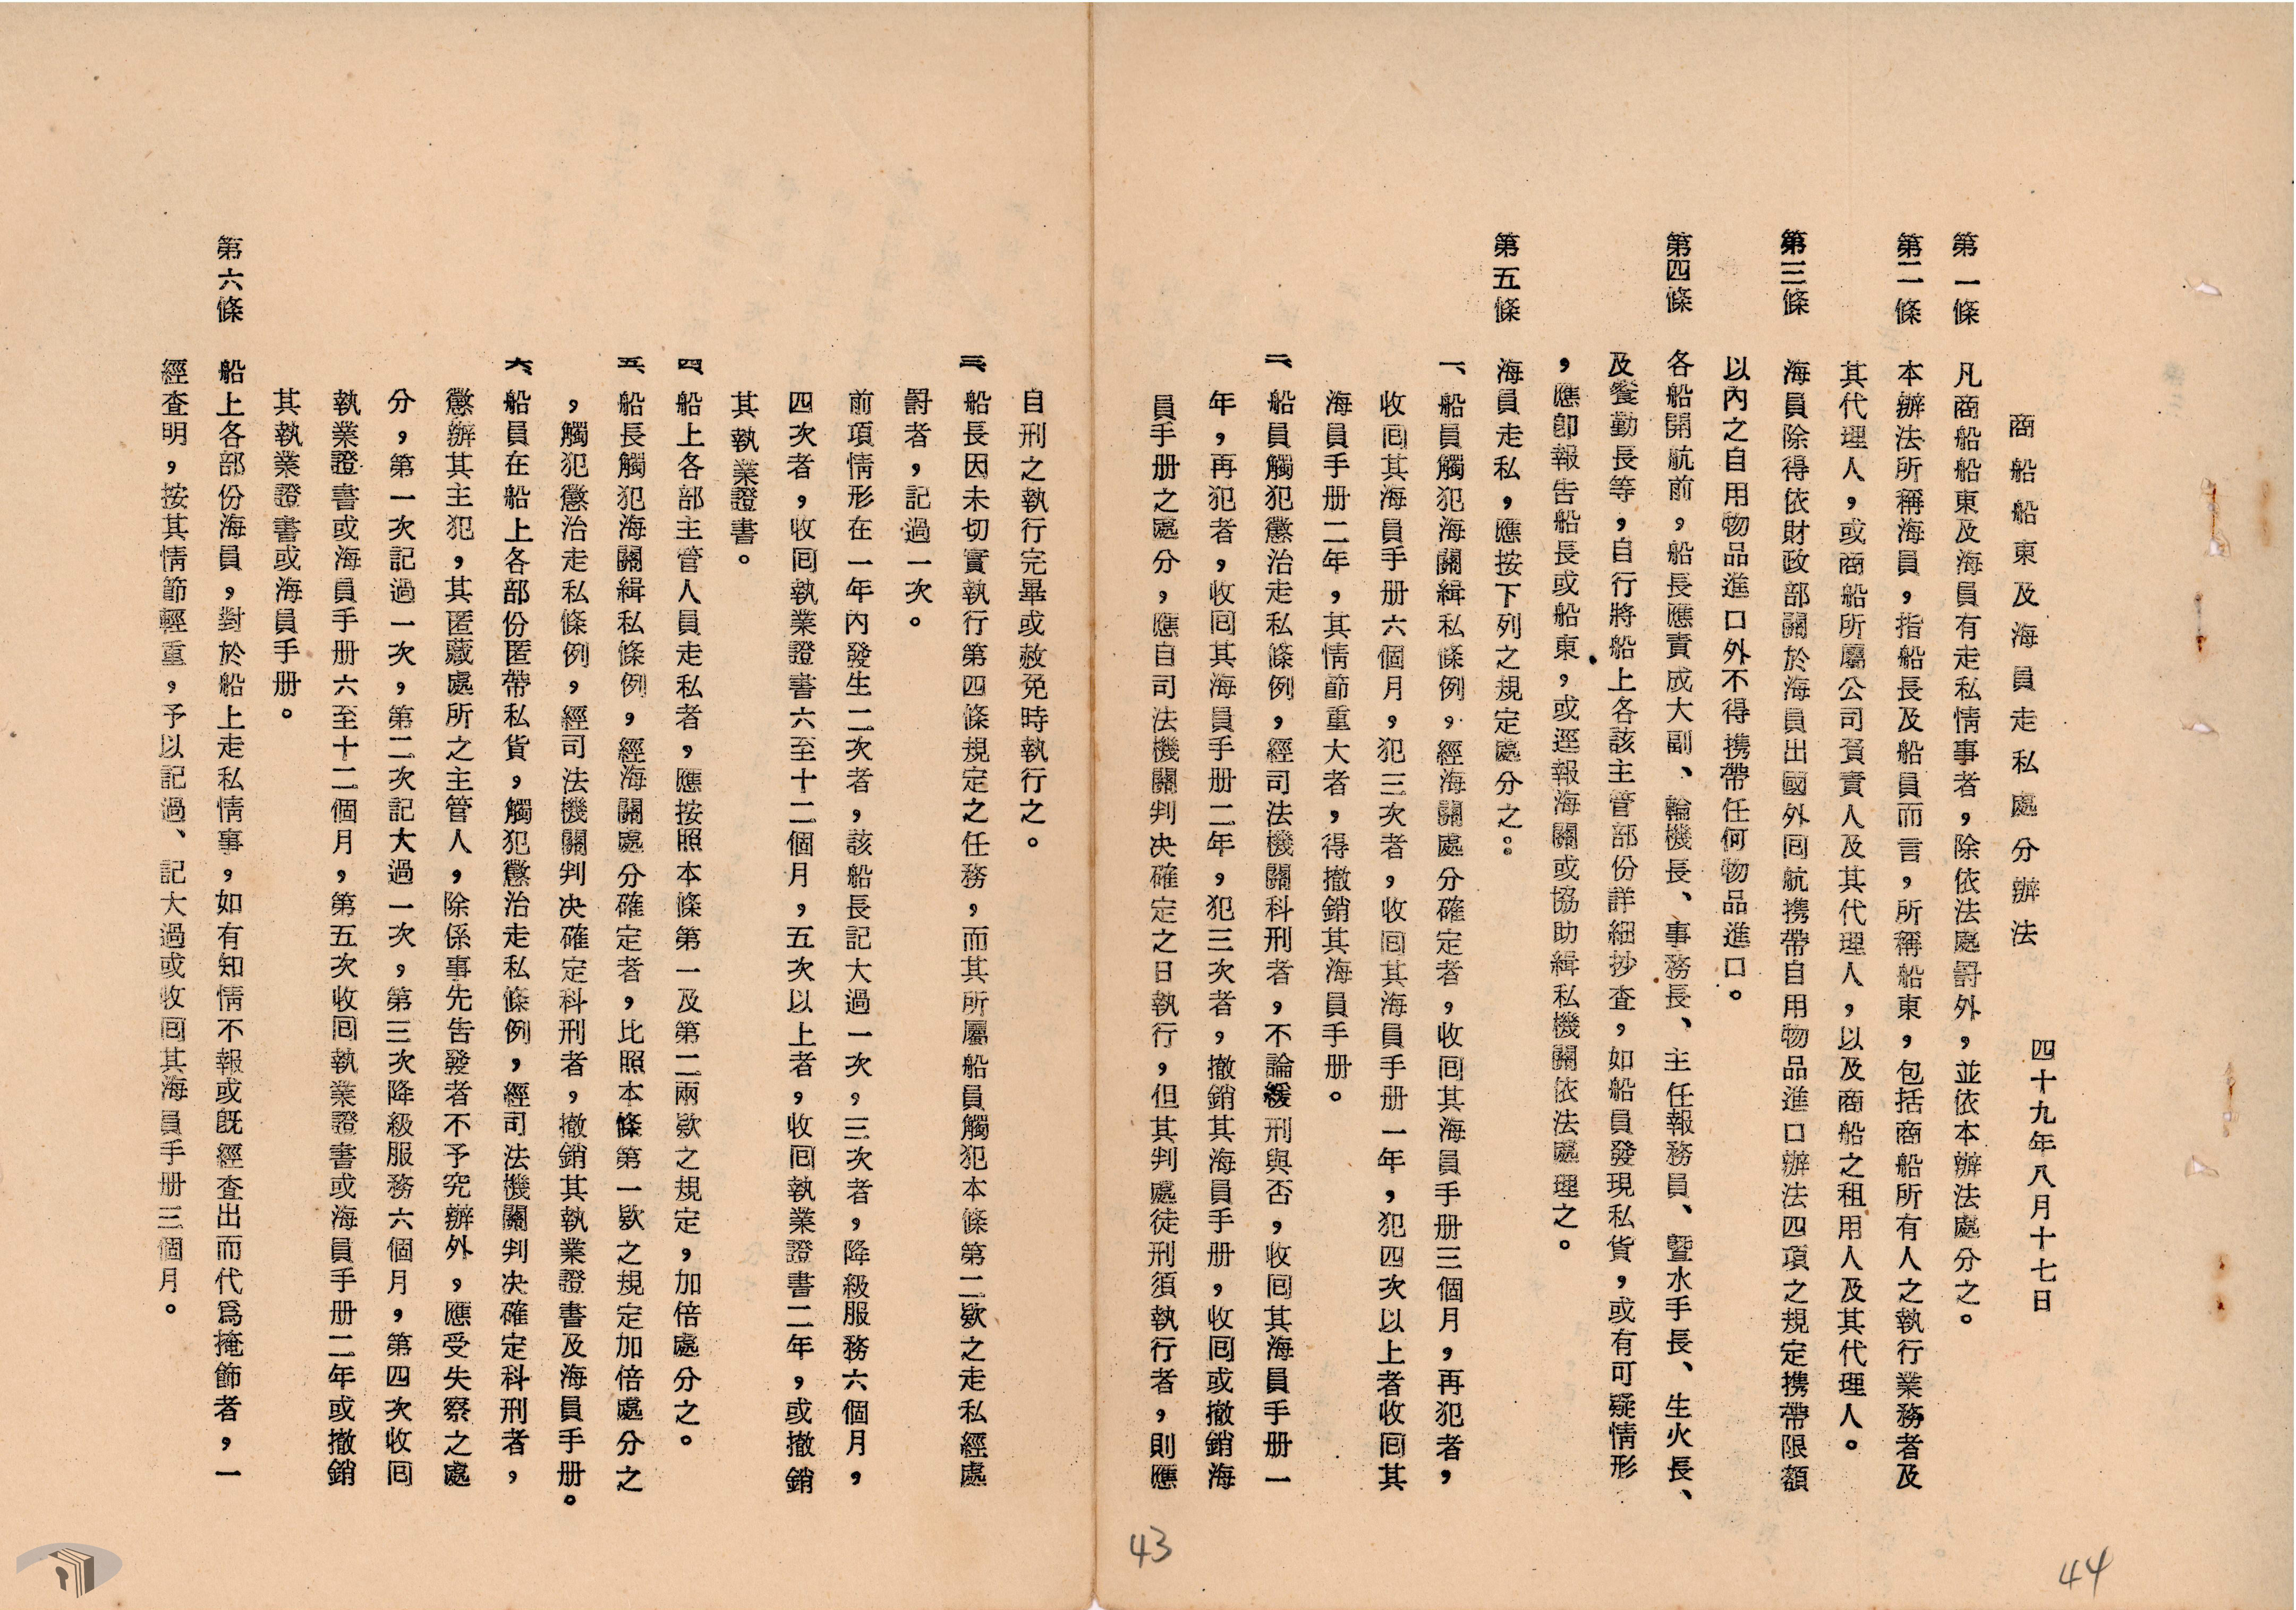 商船船東及海員走私處分辦法
四十九年八月十七日
第一條　凡商船船東及海員有走私情事者，除依法處罸外，並依本辦法處分之。
第二條　本辦法所稱海員，指船長及船員而言，所稱船東，包括商船所有人之執行業務者及
其代理人，或商船所屬公司負責人及其代理人，以及商船之租用人及其代理人。
第三條　海員除得依財政部關於海員出國外囘航携帶自用物品進口辦法四項之規定携帶限額
以內之自用物品進口外不得携帶任何物品進口。
第四條　各船開航前，船長應責成大副、輪機長、事務長、主任報務員、暨水手長、生火長、
及餐勤長等，自行將船上各該主管部份詳細抄查，如船員發現私貨，或有可疑情形
，應卽報告船長或船東，或逕報海關或協助緝私機關依法處理之。
第五條　海員走私，應按下列之規定處分之：
一、船員觸犯海關緝私條例，經海關處分確定者，收囘其海員手册三個月，再犯者，
收囘其海員手册六個月，犯三次者，收囘其海員手册一年，犯四次以上者收囘其
海員手册二年，其情節重大者，得撤銷其海員手册。
二、船員觸犯懲治走私條例，經司法機關科刑者，不論緩刑與否，收囘其海員手册一
年，再犯者，收囘其海員手册二年，犯三次者，撤銷其海員手册，收囘或撤銷海
員手册之處分，應自司法機關判决確定之日執行，但其判處徒刑須執行者，則應
自刑之執行完畢或赦免時執行之。
三、船長因未切實執行第四條規定之任務，而其所屬船員觸犯本條第二欵之走私經處
罸者，記過一次。
前項情形在一年內發生二次者，該船長記大過一次，三次者，降級服務六個月，
四次者，收囘執業證書六至十二個月，五次以上者，收囘執業證書二年，或撤銷
其執業證書。
四、船上各部主管人員走私者，應按照本條第一及第二兩欵之規定，加倍處分之。
五、船長觸犯海關緝私條例，經海關處分確定者，比照本條第一欵之規定加倍處分之
，觸犯懲治走私條例，經司法機關判决確定科刑者，撤銷其執業證書及海員手册。
六、船員在船上各部份匿帶私貨，觸犯懲治走私條例，經司法機關判决確定科刑者，
懲辦其主犯，其匿藏處所之主管人，除係事先告發者不予究辦外，應受失察之處
分，第一次記過一次，第二次記大過一次，第三次降級服務六個月，第四次收囘
執業證書或海員手册六至十二個月，第五次收囘執業證書或海員手册二年或撤銷
其執業證書或海員手册。
第六條　船上各部份海員，對於船上走私情事，如有知情不報或旣經查出而代爲掩飾者，一
經查明，按其情節輕重，予以記過、記大過或收囘其海員手册三個月。
43
44